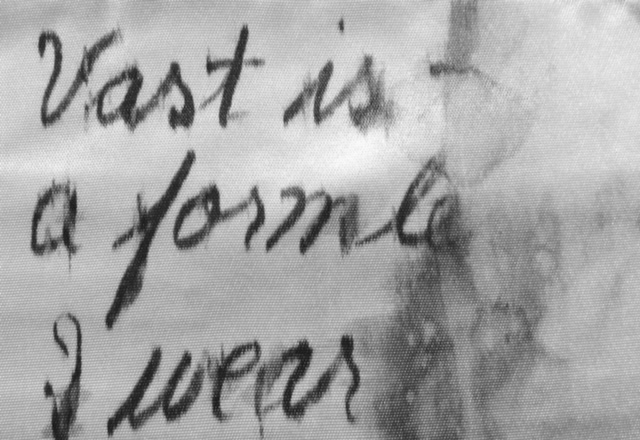 Vast is
a formle
I wear